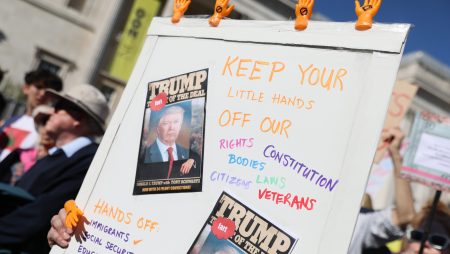 KEEP YOUR
LITTLE HANDS
OFF OUR
RIGHTS CONSTITUTION
BODIES LAWS
CITIZENS VETERANS
TRUMP
THE ART OF THE DEAL
DONALD J. TRUMP WITH TONY SCHWARTZ
HANDS OFF:
IMMIGRANTS
SOCIAL SECURITY
TRUMP
OF THE DEAL